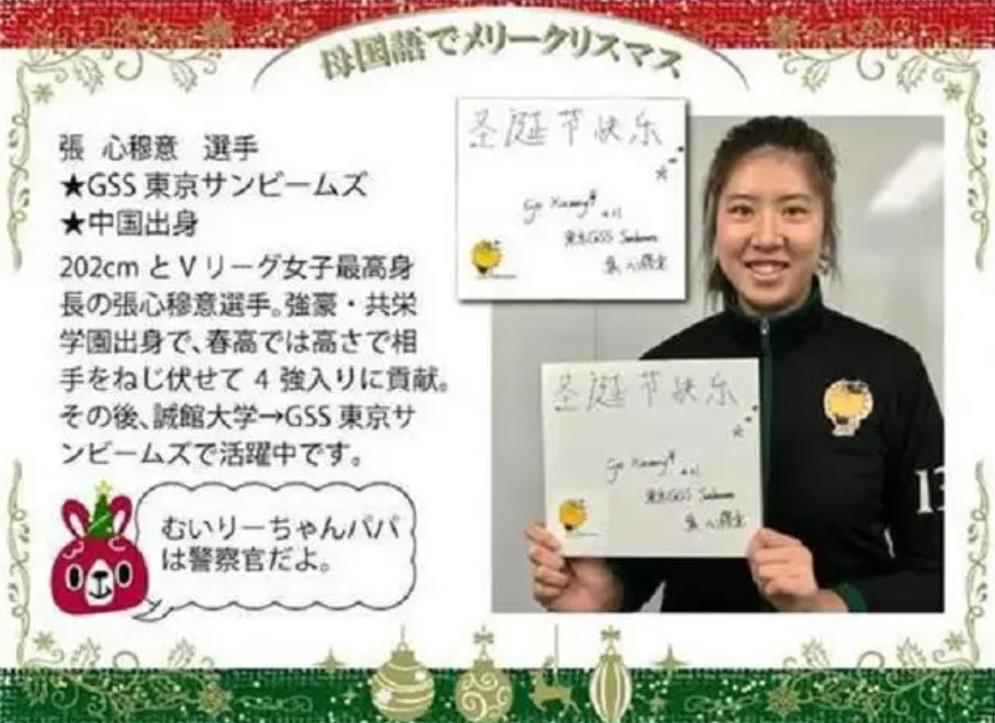 母国語でメリークリスマス
張 心穆意 選手
★GSS 東京サンビームズ
★中国出身
202cm と V リーグ女子最高身
長の張心穆意選手。強豪・共栄
学園出身で、春高では高さで相
手をねじ伏せて 4 強入りに貢献。
その後、誠館大学→GSS 東京サ
ンビームズで活躍中です。
むいりーちゃんパパ
は警察官だよ。
圣诞节快乐
東京GSS Sunbeams
圣诞节快乐
東京GSS Sunbeams
13